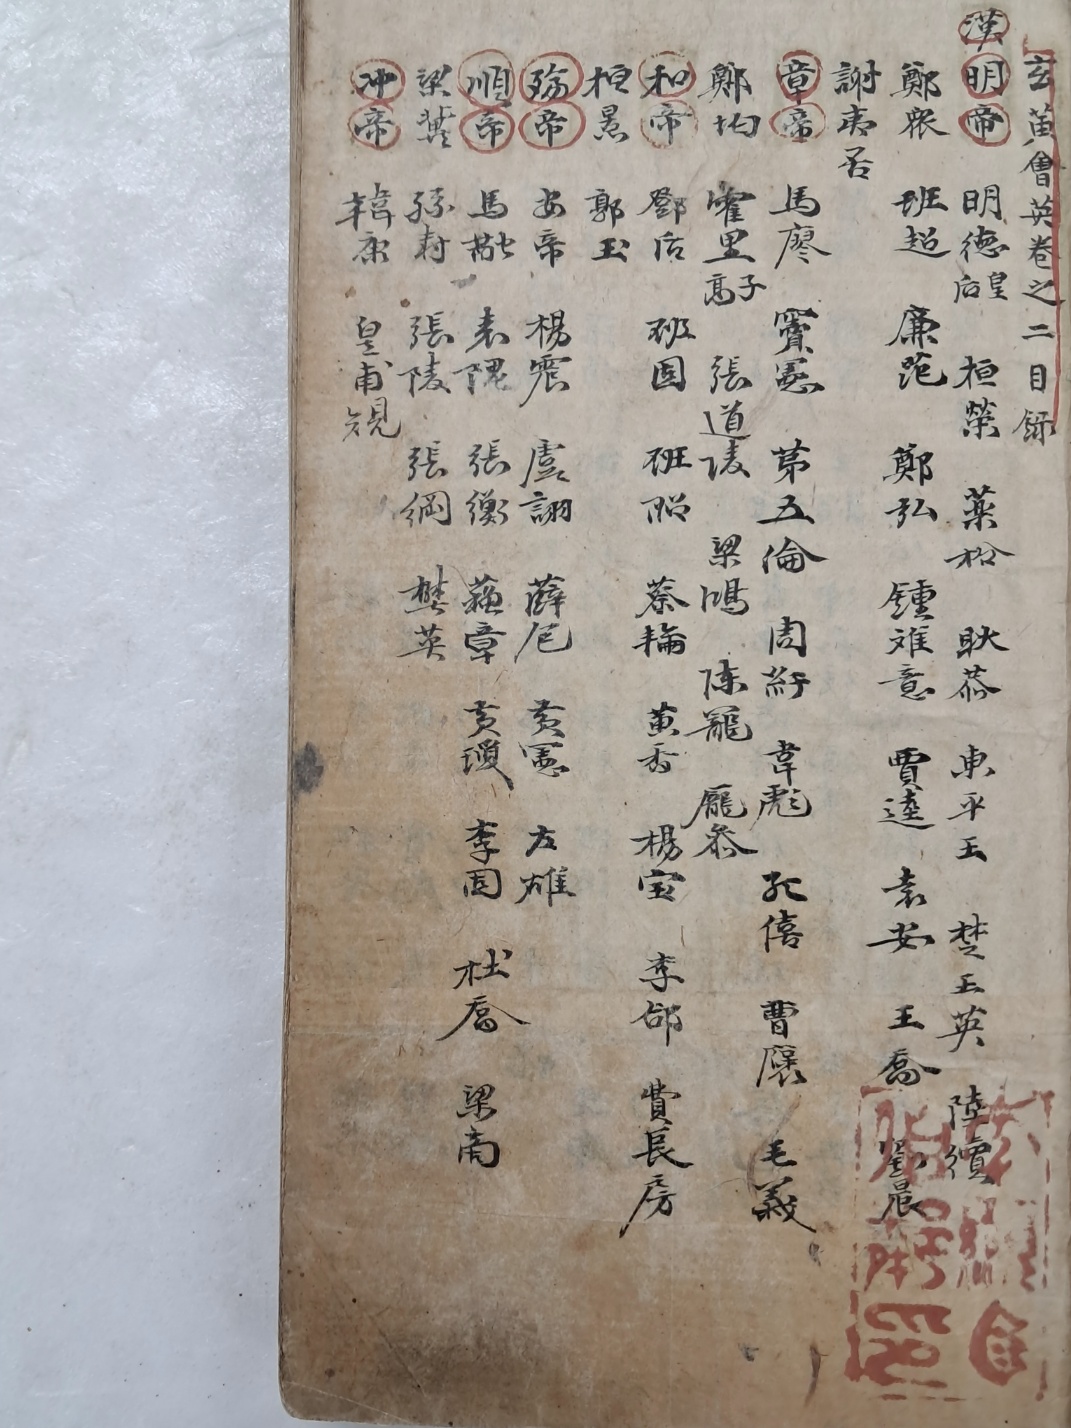 玄黃會英卷之二目錄
漢明帝 明德皇后 桓榮 藥松 耿恭 東平王 楚王英 陸續
鄭衆 班超 廉范 鄭弘 鍾难意 賈逵 袁安 王喬 劉晨
謝夷吾
章帝 馬廖 竇憲 苐五倫 周紆 韋彪 孔僖 曹襃 毛義
鄭均 霍里子高 張道陵 梁鴻 陳寵 龐參
和帝 鄧后 班固 班昭 蔡輪 黃香 楊宝 李郃 費長房
桓景 郭玉
殤帝 安帝 楊震 虞詡 薛包 黃憲 左雄
順帝 馬融 袁隗 張衡 蘓章 黃瓊 李固 杜喬 梁商
梁冀 孫壽 張陵 張綱 樊英
冲帝 韓康 皇甫規